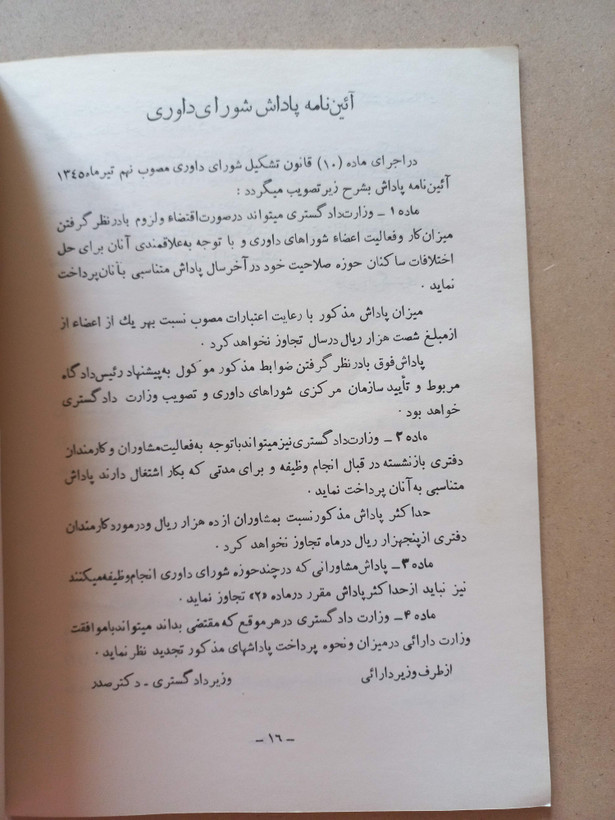 آئین‌نامه پاداش شورای داوری
دراجرای ماده (۱۰) قانون تشکیل شورای داوری مصوب نهم تیرماه ۱۳٤٥
آئین‌نامه پاداش بشرح زیر تصویب میگردد :
ماده ۱ـ وزارت دادگستری میتواند درصورت اقتضاء ولزوم بادرنظر گرفتن
میزان کار وفعالیت اعضاء شوراهای داوری و با توجه به‌علاقمندی آنان برای حل
اختلافات ساکنان حوزه صلاحیت خود در آخر سال پاداش متناسبی بآنان پرداخت
نماید .
میزان پاداش مذکور با رعایت اعتبارات مصوب نسبت بهر یك از اعضاء از
ازمبلغ شصت هزار ریال درسال تجاوز نخواهد کرد .
پاداش فوق بادرنظر گرفتن ضوابط مذکور موکول به‌پیشنهاد رئیس دادگاه
مربوط و تأیید سازمان مرکزی شوراهای داوری و تصویب وزارت دادگستری
خواهد بود .
ماده ۲ـ وزارت دادگستری نیز میتواند باتوجه به‌فعالیت مشاوران و کارمندان
دفتری بازنشسته در قبال انجام وظیفه و برای مدتی که بکار اشتغال دارند پاداش
متناسبی به‌آنان پرداخت نماید .
حداکثر پاداش مذکور نسبت بمشاوران از ده هزار ریال ودرمورد کارمندان
دفتری از پنجهزار ریال درماه تجاوز نخواهد کرد .
ماده ۳ـ پاداش مشاورانی که درچند حوزه شورای داوری انجام وظیفه میکنند
نیز نباید از حداکثر پاداش مقرر درماده «۲» تجاوز نماید .
ماده ۴ـ وزارت دادگستری در هر موقع که مقتضی بداند میتواند باموافقت
وزارت دارائی درمیزان ونحوه پرداخت پاداشهای مذکور تجدید نظر نماید .
ازطرف وزیر دارائی وزیر دادگستری ـ دکتر صدر
ـ ۱٦ ـ